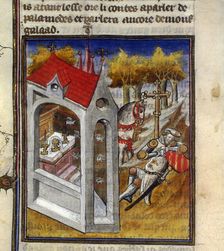 is atant lesse or li contes a parler de
palamedes et parlera ancore de mons
galaad.